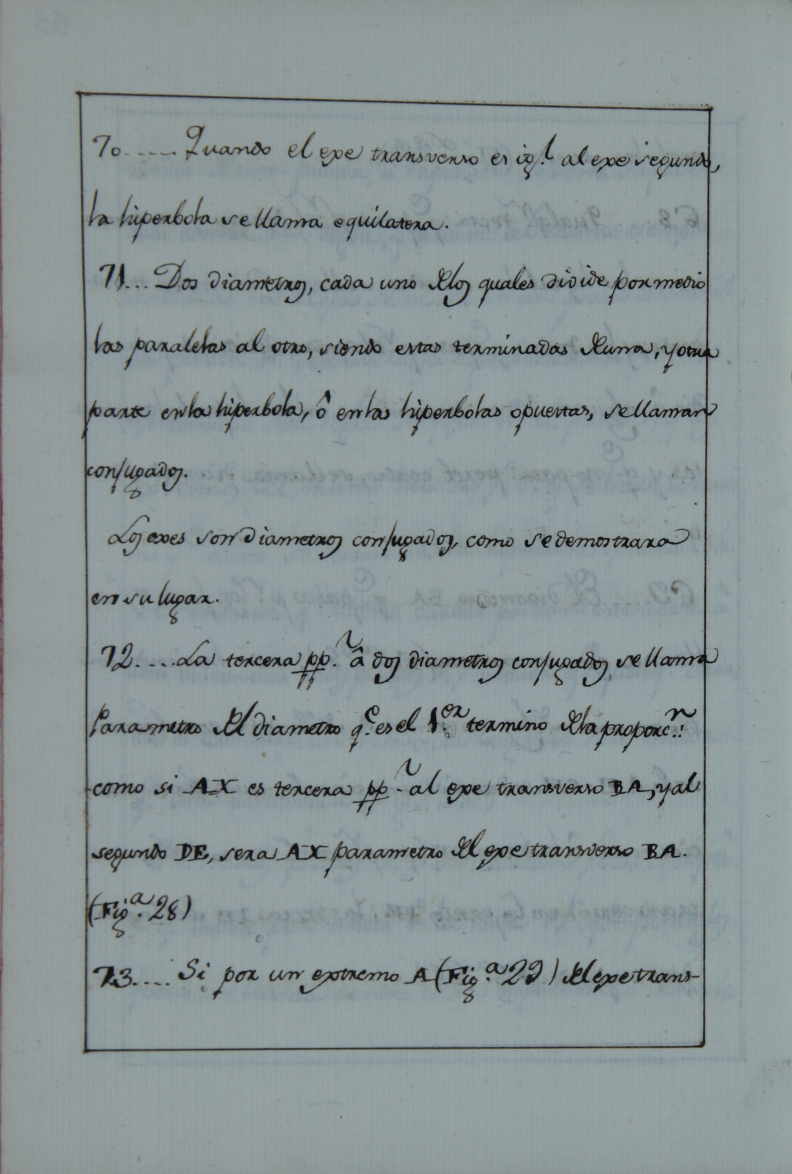 70..... Quando el exe transverso es ig.l al exe segundo,
la hiperbola se llama equilatera.
71... Dos diametros, cada uno delos quales divide por medio
las paralelas al otro, siendo estas terminadas de una, y otra
parte en la hiperbola, ô en las hiperbolas opuestas, se llaman
conjugados.
Los exes son diametros conjugados, como se demostrara
en su lugar.
72.... La tercera pp.l â dos diametros conjugados, se llama
Parametro del diametro q.e es el 1.er termino dela proporc.n:
como si AX es tercera pp.l al exe transverso BA, y al
segundo DE, sera AX parametro del exe transverso BA.
(Fig.a 28)
73.... Si por un extremo A (Fig.a 29) del exe trans-